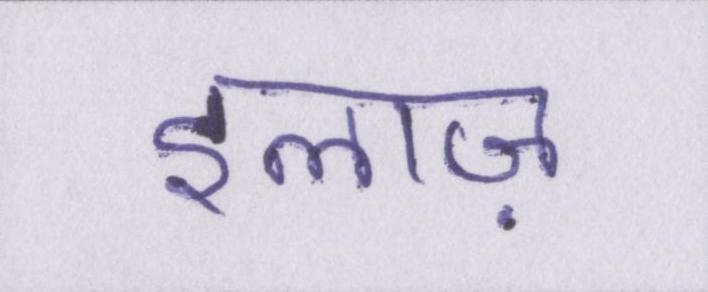 इलाज़